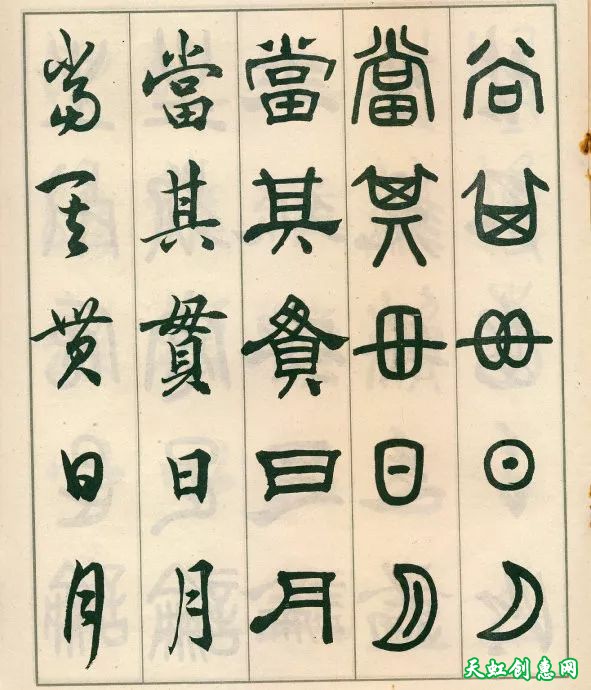 當其貫日月
當其貫日月
當其貫日月
當其貫日月
當其貫日月
天虹创惠网